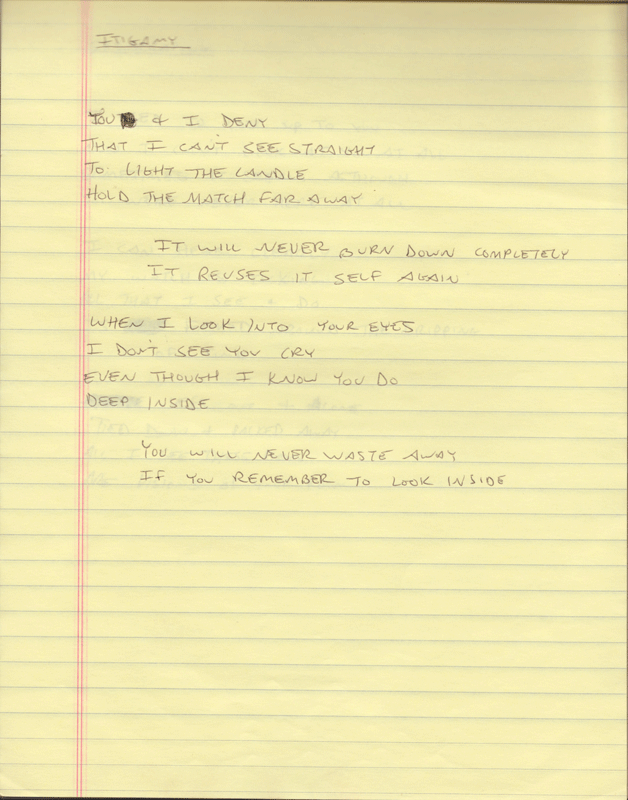 ITIGAMY
YOU & I DENY
THAT I CAN'T SEE STRAIGHT
TO LIGHT THE CANDLE
HOLD THE MATCH FAR AWAY
IT WILL NEVER BURN DOWN COMPLETELY
IT REUSES IT SELF AGAIN
WHEN I LOOK INTO YOUR EYES
I DON'T SEE YOU CRY
EVEN THOUGH I KNOW YOU DO
DEEP INSIDE
YOU WILL NEVER WASTE AWAY
IF YOU REMEMBER TO LOOK INSIDE